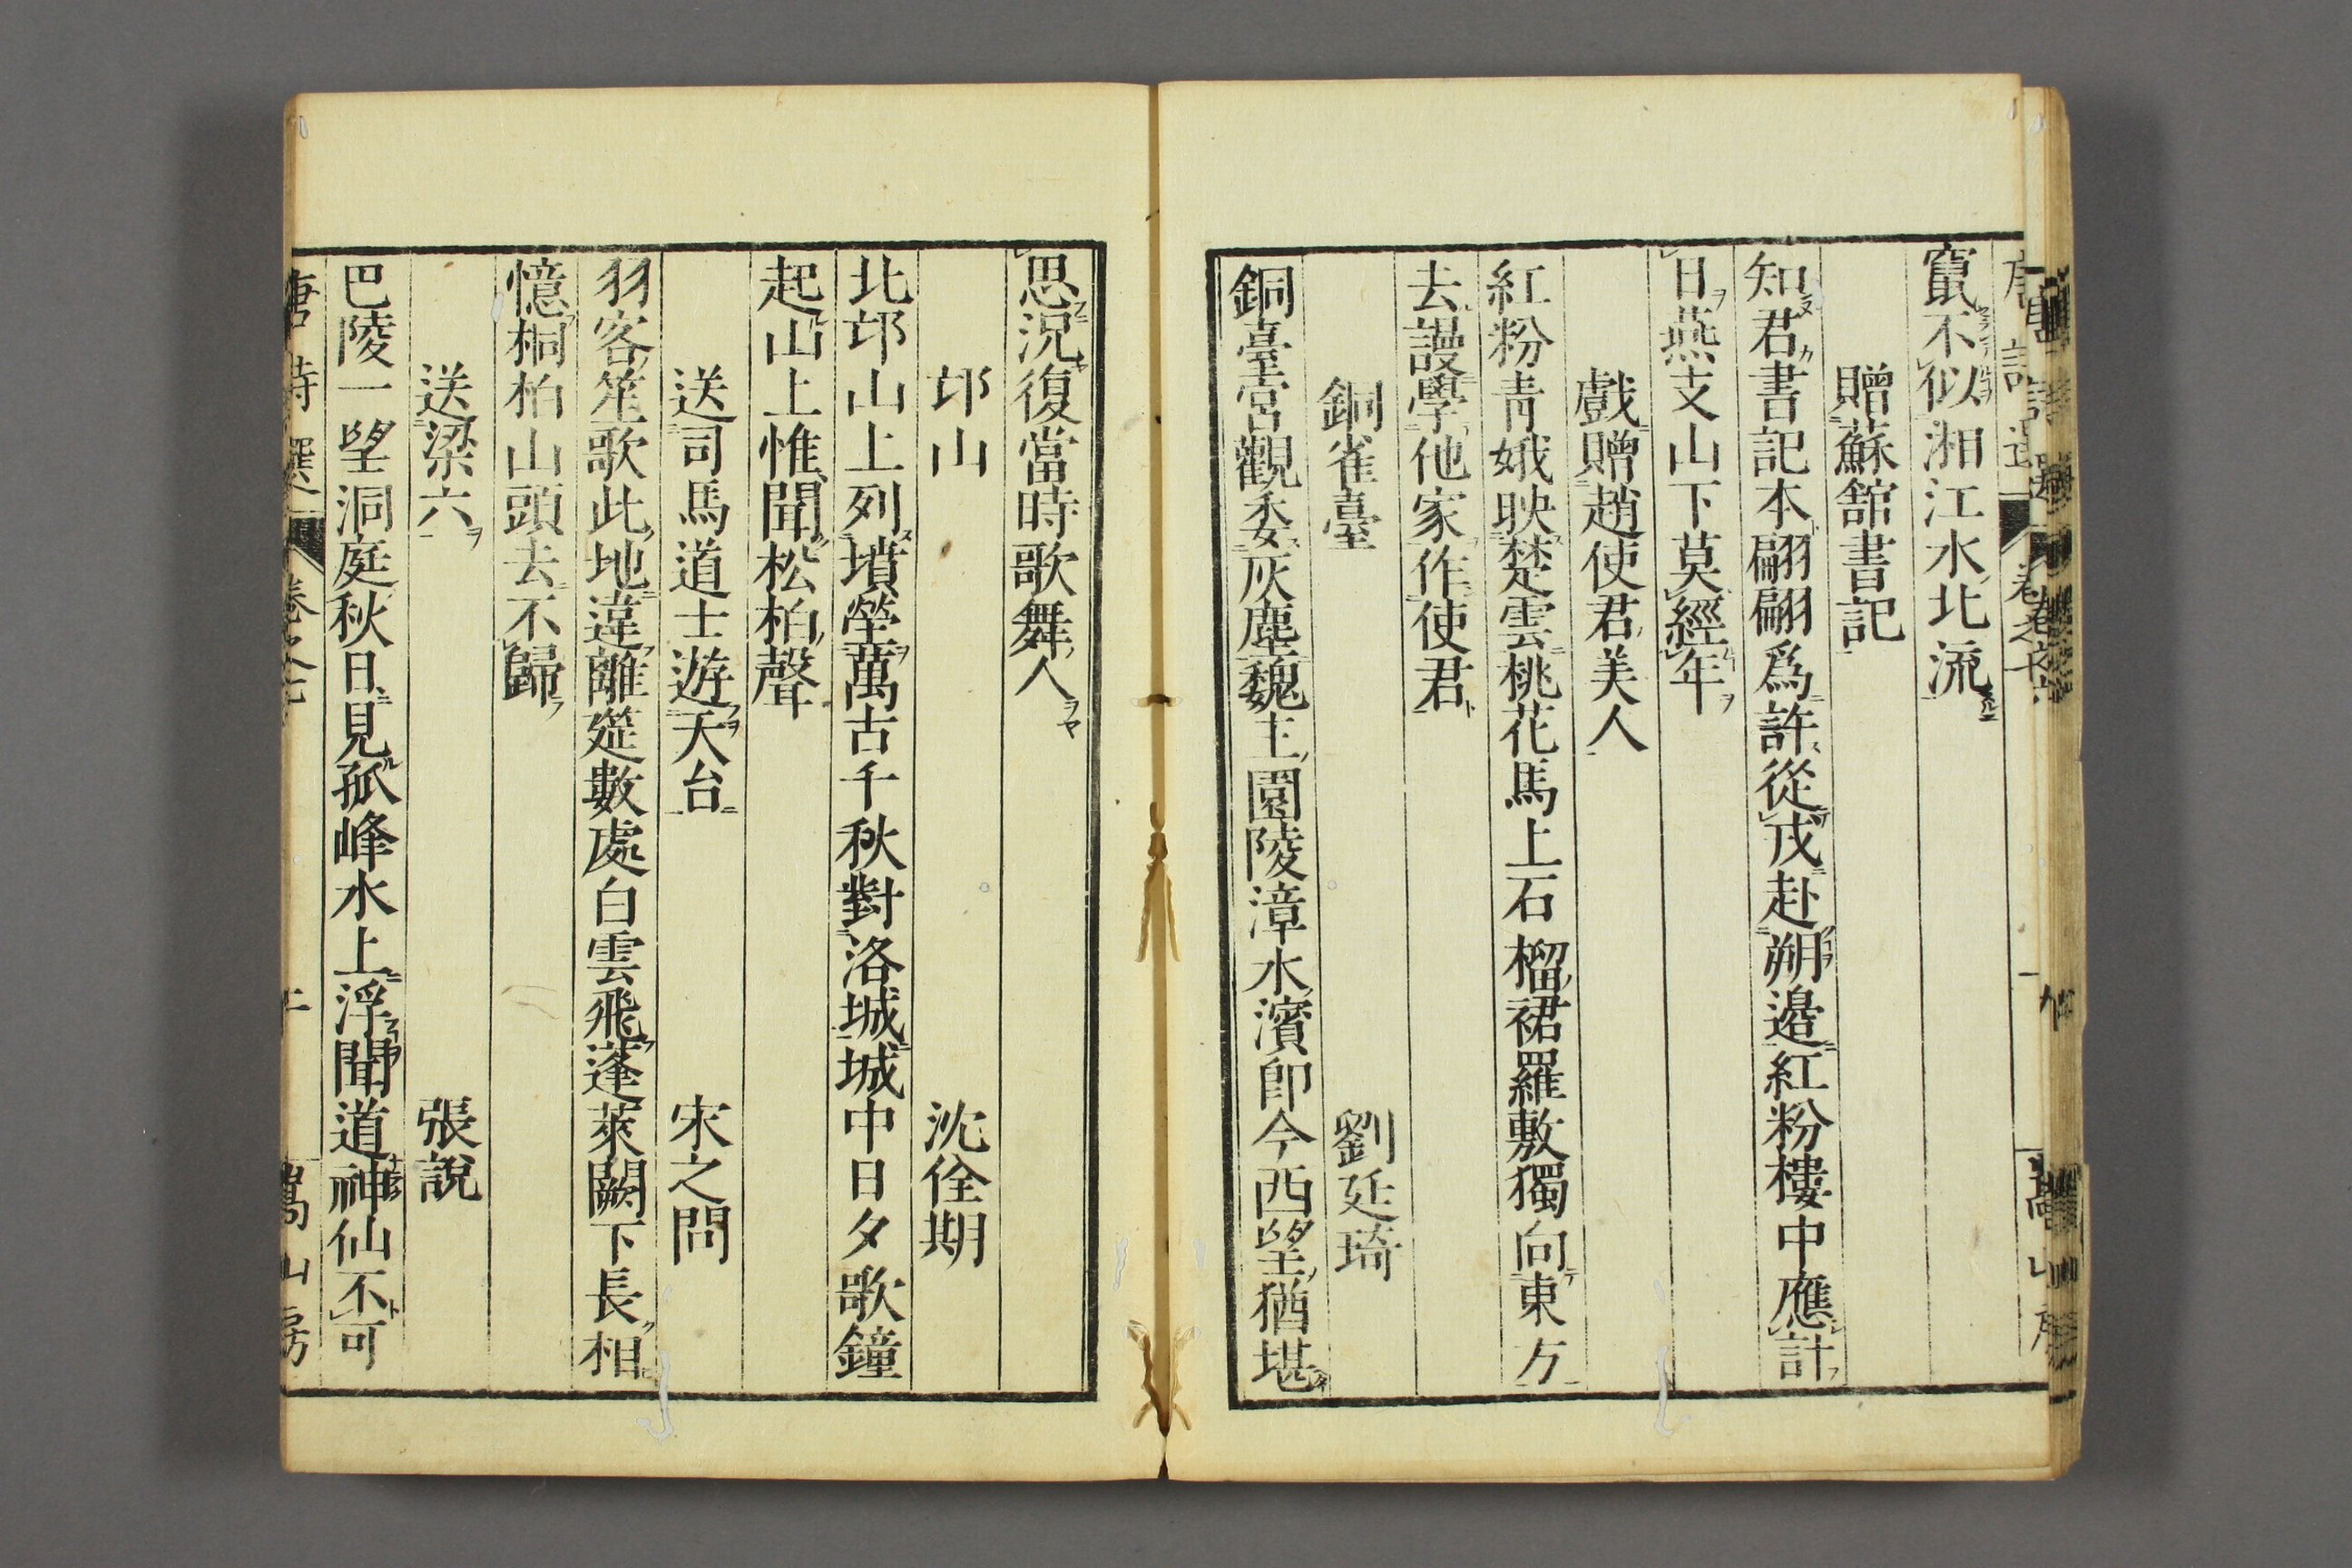 竄不似湘江水北流
贈蘇舘書記
知君書記本翩翩爲許從戎赴朔邉紅粉樓中應計
日燕支山下莫經年
戲贈趙使君美人
紅粉青娥映楚雲桃花馬上石榴裙羅敷獨向東方
去謾學他家作使君
銅雀臺 劉廷琦
銅臺宮觀委灰塵魏主園陵漳水濱即今西望猶堪
思況復當時歌舞人
邙山 沈佺期
北邙山上列墳塋萬古千秋對洛城城中日夕歌鐘
起山上惟聞松柏聲
送司馬道士遊天台 宋之問
羽客笙歌此地違離筵數處白雲飛蓬萊闕下長相
憶桐柏山頭去不歸
送梁六 張說
巴陵一望洞庭秋日見孤峰水上浮聞道神仙不可
唐詩選 卷之七 嵩山房